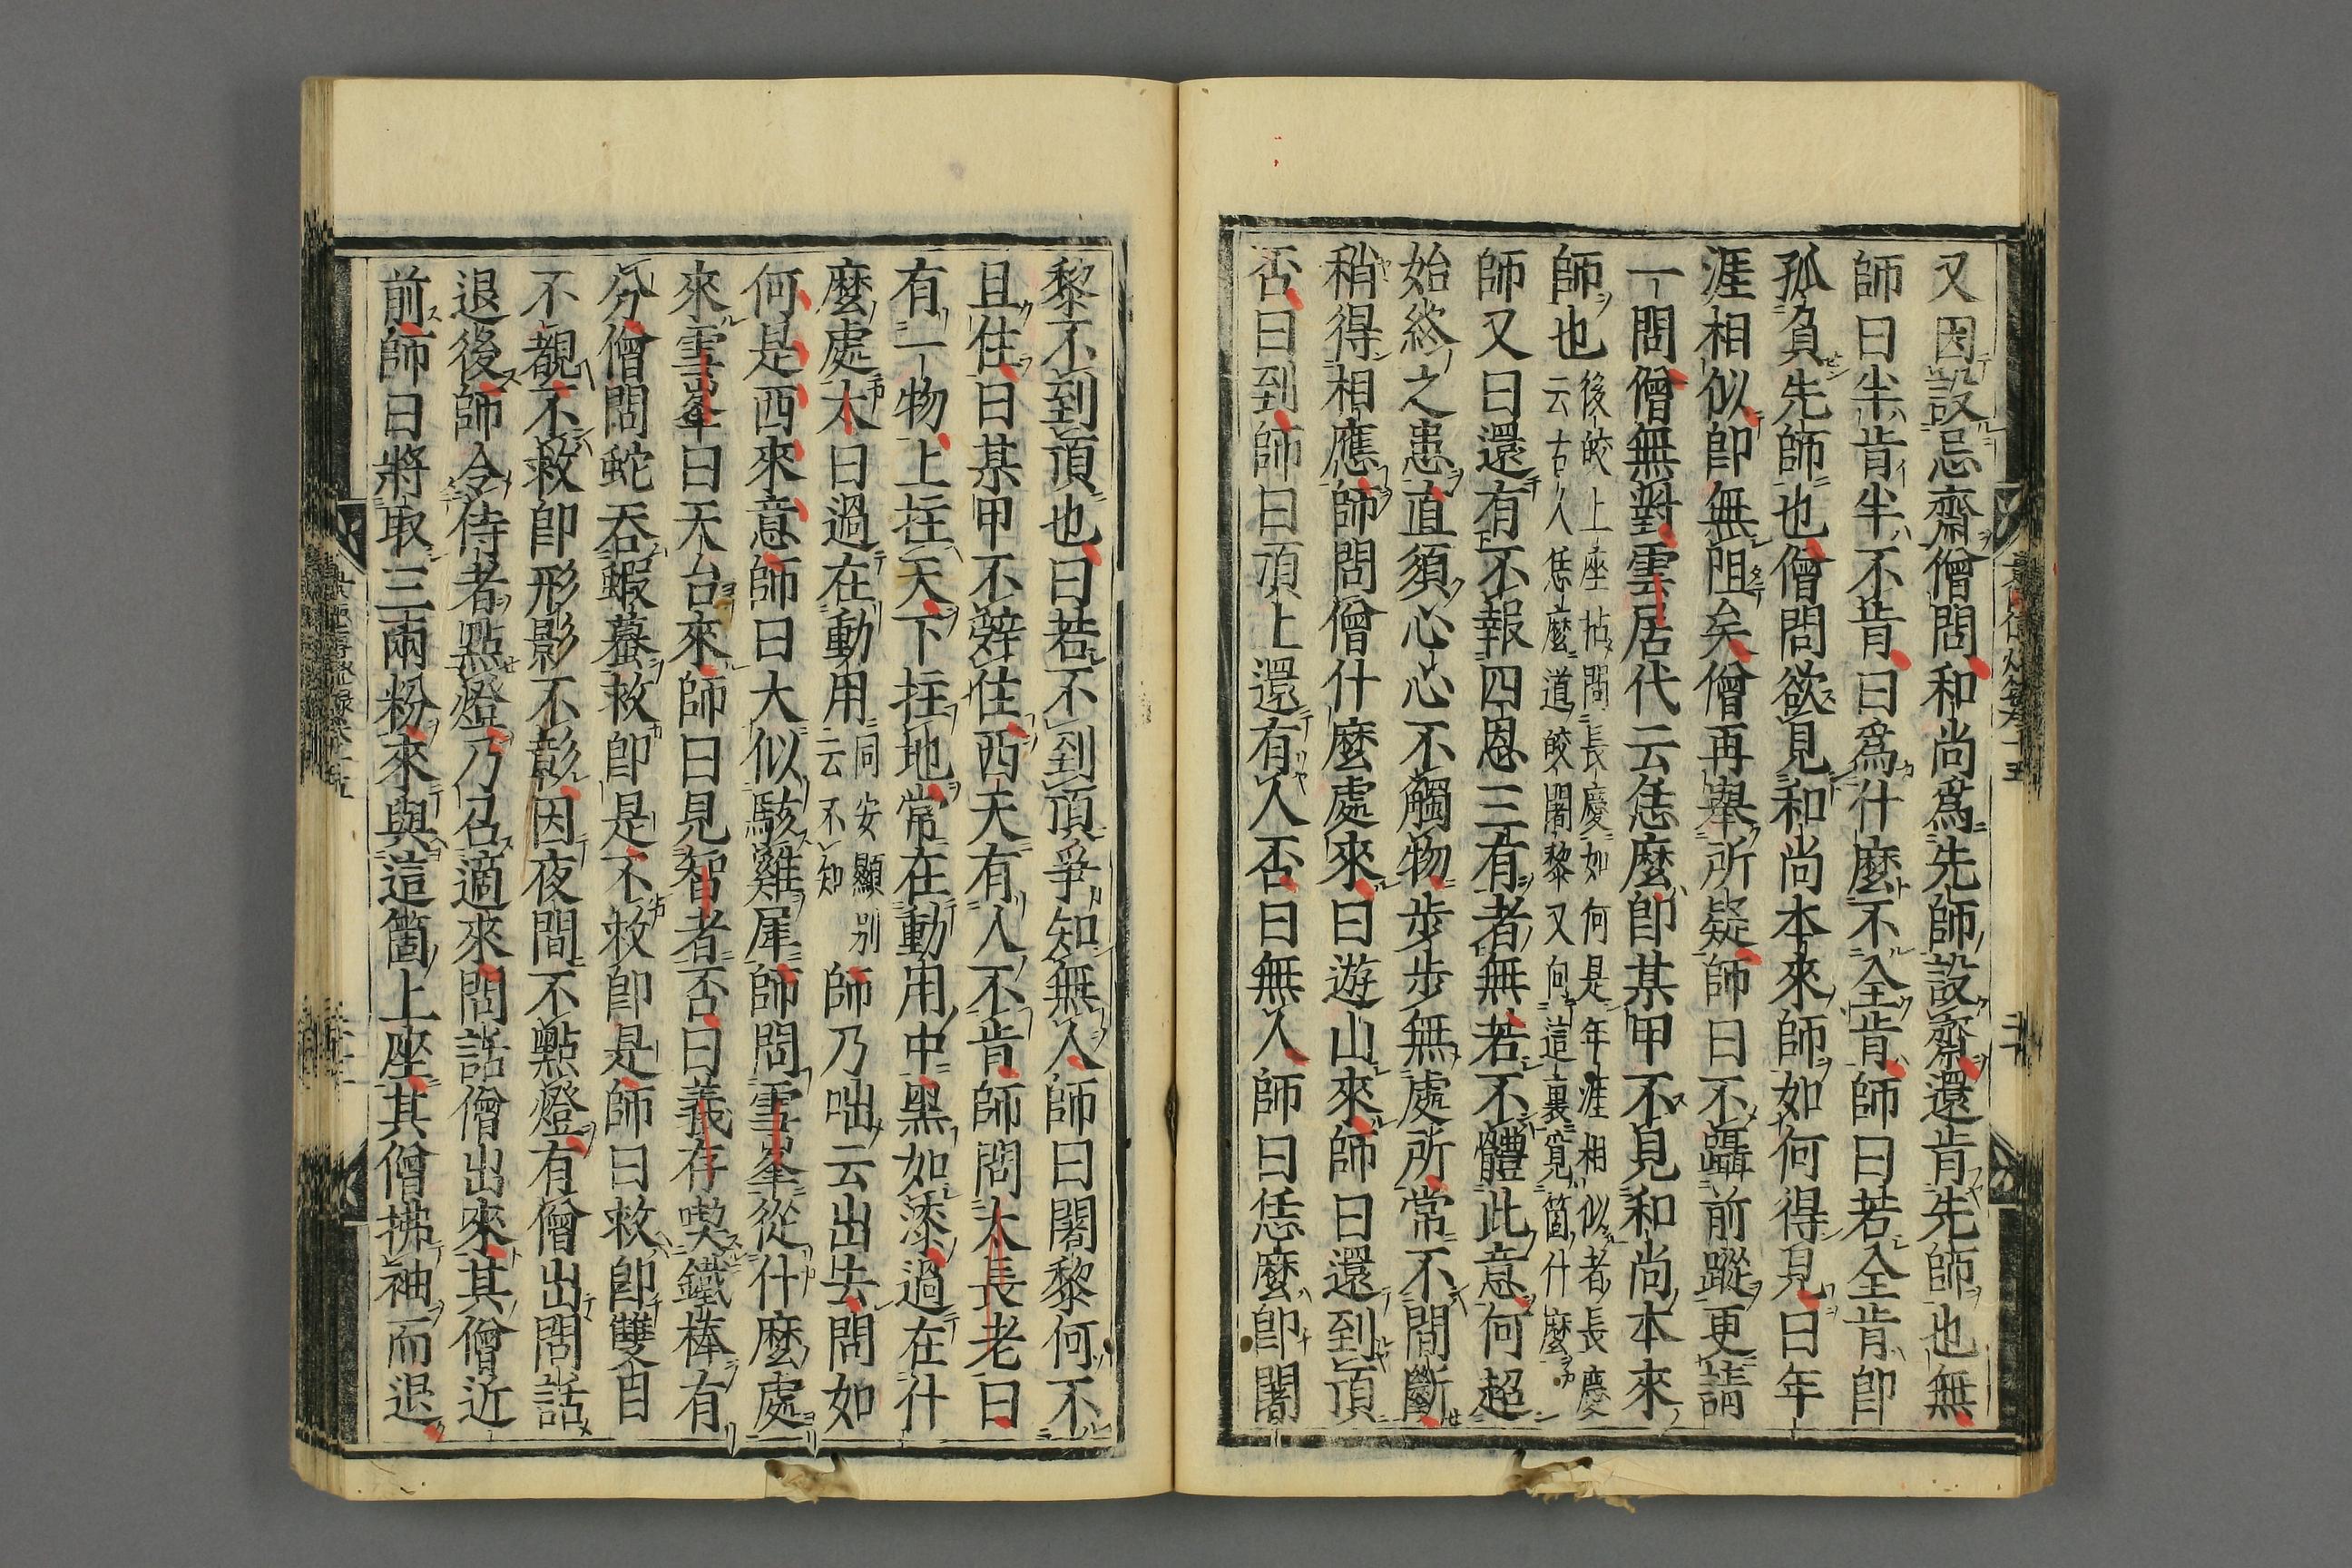 又因設忌齋僧問和尚爲先師設齋還肯先師也無
師曰半肯半不肯曰爲什麼不全肯師曰若全肯卽
孤負先師也僧問欲見和尚本來師如何得見曰年
涯相似卽無阻矣僧再舉所疑師曰不躡前蹤更請
一問僧無對雲居代云恁麼卽某甲不見和尚本來
師也
後皎上座拈問長慶如何是年涯相似者長慶
云古人恁麼道皎闍黎又向這裏覓箇什麼
師又曰還有不報四恩三有者無若不體此意何超
始終之患直須心心不觸物步步無處所常不間斷
稍得相應師問僧什麼處來曰遊山來師曰還到頂
否曰到師曰頂上還有人否曰無人師曰恁麼卽闍
黎不到頂也曰若不到頂爭知無人師曰闍黎何不
且住曰某甲不辭住西天有人不肯師問太長老曰
有一物上拄天下拄地常在動用中黑如漆過在什
麼處太曰過在動用
同安顯別
云不知
師乃咄云出去問如
何是西來意師曰大似駭雞犀師問雪峯從什麼處
來雪峯曰天台來師曰見智者否曰義存喫鐵棒有
分僧問蛇吞蝦蟇救卽是不救卽是師曰救卽雙目
不覩不救卽形影不彰因夜間不點燈有僧出問話
退後師令侍者點燈乃召適來問話僧出來其僧近
前師曰將取三兩粉來與這箇上座其僧拂袖而退